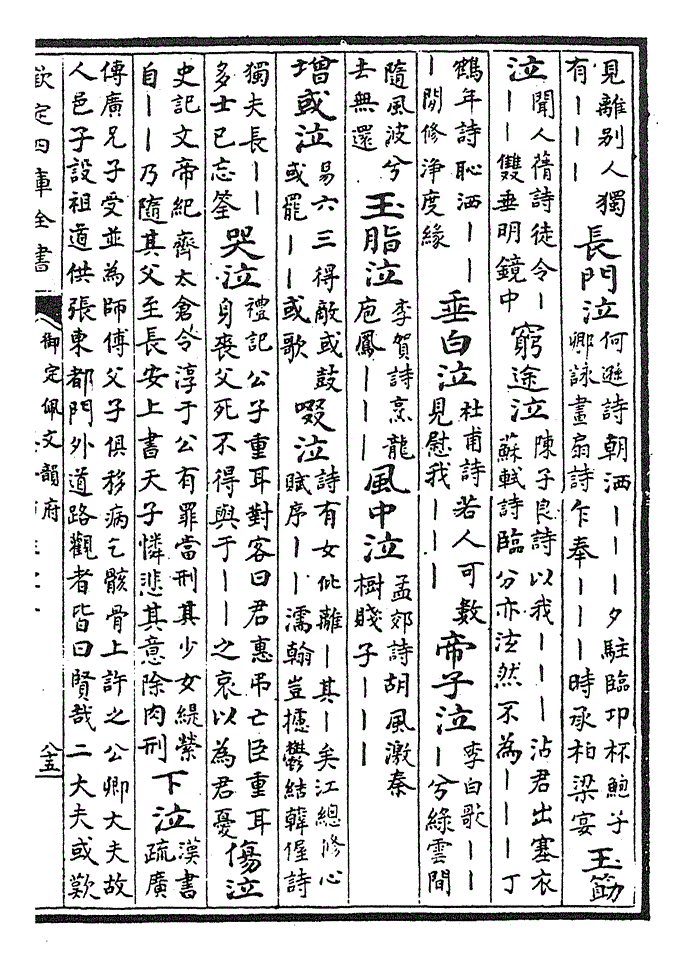 見離别人獨
有｜｜｜
長門泣
何遜詩朝洒｜｜｜夕駐臨卭杯鮑子
卿詠畫扇詩乍奉｜｜｜時承柏梁宴
玉筯
泣
聞人蒨詩徒令｜
｜｜雙垂明鏡中
窮途泣
陳子良詩以我｜｜｜沾君出塞衣
蘇軾詩臨分亦泫然不為｜｜｜丁
鶴年詩恥洒｜｜
｜閒修淨度緣
垂白泣
杜甫詩若人可數
見慰我｜｜｜
帝子泣
李白歌｜｜
｜兮綠雲間
隨風波兮
去無還
玉脂泣
李賀詩烹龍
庖鳳｜｜｜
風中泣
孟郊詩胡風激秦
樹賤子｜｜｜
增或泣
易六三得敵或鼓
或罷｜｜或歌
啜泣
詩有女仳離｜其｜矣江總修心
賦序｜｜濡翰豈攄鬱結韓偓詩
獨夫長｜｜
多士已忘筌
哭泣
禮記公子重耳對客曰君惠弔亡臣重耳
身喪父死不得與于｜｜之哀以為君憂
傷泣
史記文帝紀齊太倉令淳于公有罪當刑其少女緹縈
自｜｜乃隨其父至長安上書天子憐悲其意除肉刑
下泣
漢書
疏廣
傳廣兄子受並為師傅父子俱移病乞骸骨上許之公卿大夫故
人邑子設祖道供張東都門外道路觀者皆曰賢哉二大夫或歎
欽定四庫全書
御定佩文韻府